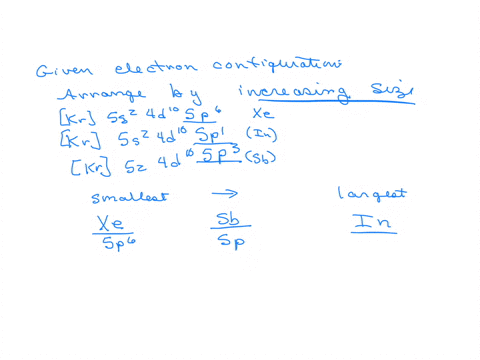 Given electron configuration:
Arrange by increasing size
[Kr] 5s² 4d¹⁰ 5p⁶ Xe
[Kr] 5s² 4d¹⁰ 5p¹ (In)
[Kr] 5s 4d¹⁰ 5p³ (Sb)
smallest → largest
Xe Sb In
5p⁶ 5p